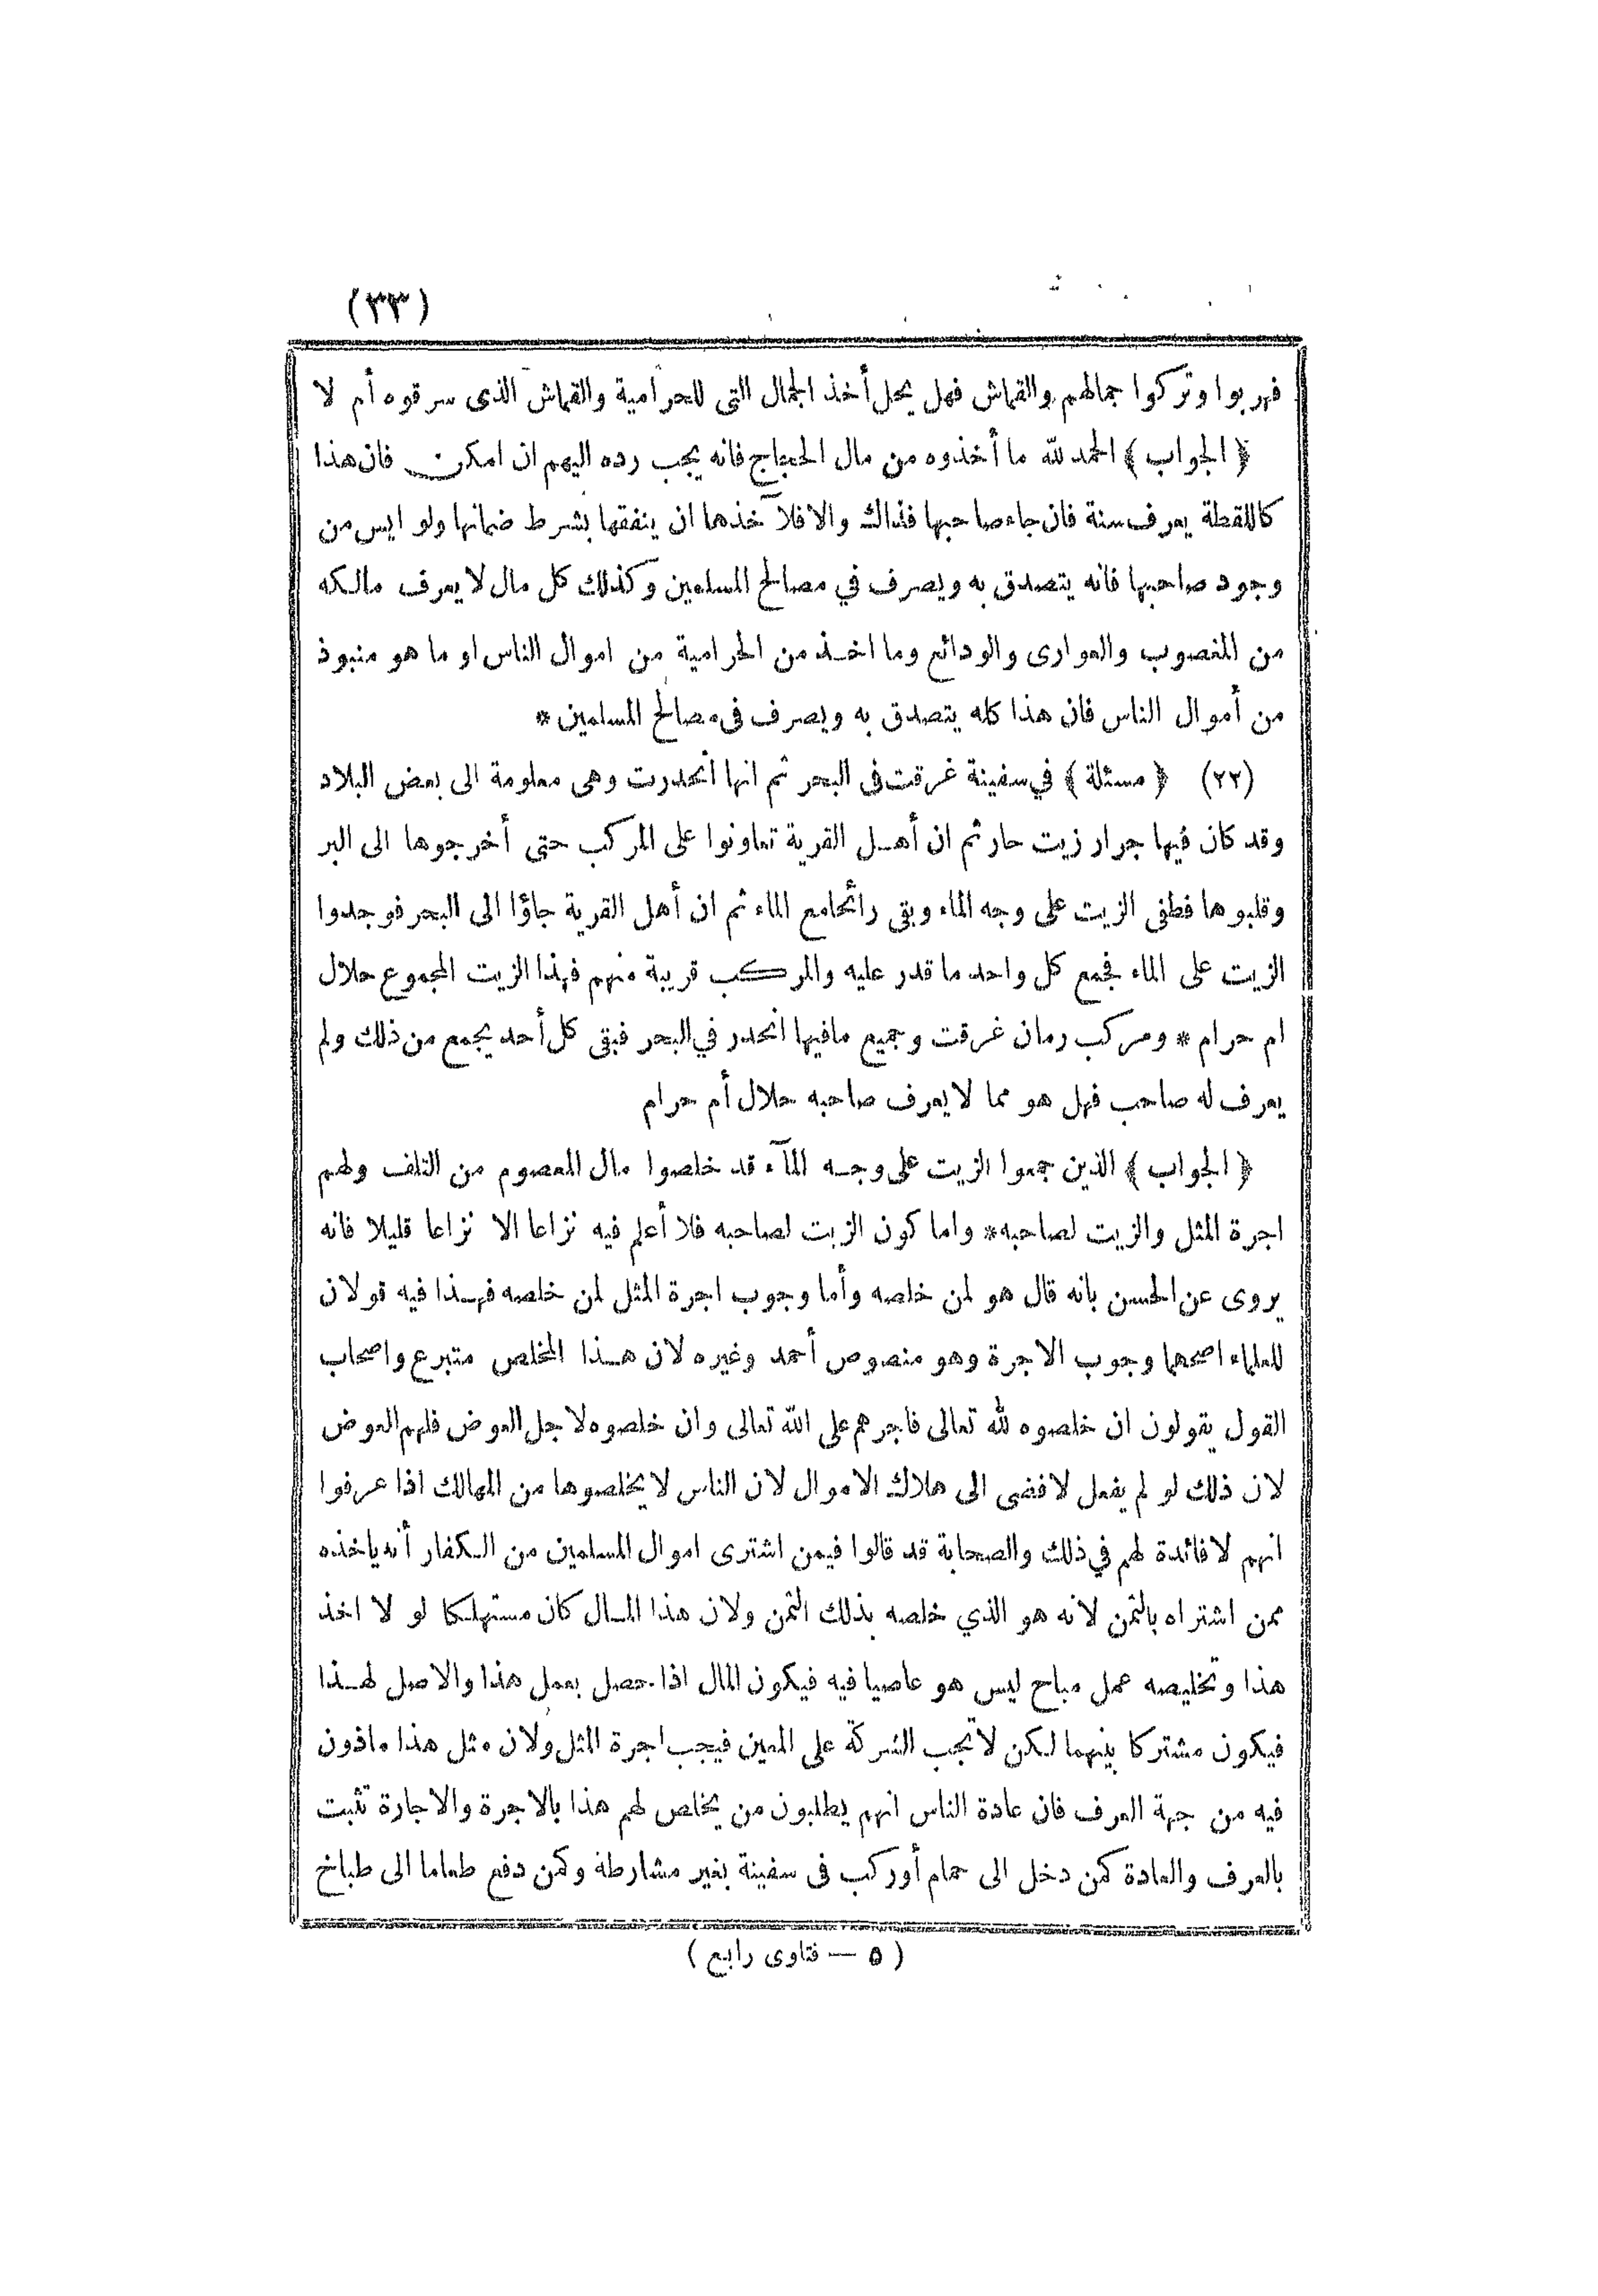 (٣٣)
فهربوا وتركوا جمالهم والقماش فهل يحل أخذ الجمال التى للحرامية والقماش الذى سرقوه أم لا
﴿ الجواب ﴾ الحمد لله ما أخذوه من مال الحجاج فانه يجب رده اليهم ان امكن فان هذا
كاللقطة يعرف سنة فان جاء صاحبها فذاك والا فلآخذها ان ينفقها بشرط ضمانها ولو ايس من
وجود صاحبها فانه يتصدق به ويصرف في مصالح المسلمين وكذلك كل مال لا يعرف مالكه
من المغصوب والعوارى والودائع وما اخذ من الحرامية من اموال الناس او ما هو منبوذ
من أموال الناس فان هذا كله يتصدق به ويصرف فى مصالح المسلمين *
(٢٢) ﴿ مسئلة ﴾ في سفينة غرقت فى البحر ثم انها انحدرت وهى معلومة الى بعض البلاد
وقد كان فيها جرار زيت حار ثم ان أهل القرية تعاونوا على المركب حتى أخرجوها الى البر
وقلبوها فطفى الزيت على وجه الماء وبقى رائحا مع الماء ثم ان أهل القرية جاؤا الى البحر فوجدوا
الزيت على الماء فجمع كل واحد ما قدر عليه والمركب قريبة منهم فهذا الزيت المجموع حلال
ام حرام * ومركب رمان غرقت وجميع مافيها انحدر في البحر فبقى كل أحد يجمع من ذلك ولم
يعرف له صاحب فهل هو مما لا يعرف صاحبه حلال أم حرام
﴿ الجواب ﴾ الذين جمعوا الزيت على وجه المآء قد خلصوا مال المعصوم من التلف ولهم
اجرة المثل والزيت لصاحبه* واما كون الزيت لصاحبه فلا أعلم فيه نزاعا الا نزاعا قليلا فانه
يروى عن الحسن بانه قال هو لمن خلصه وأما وجوب اجرة المثل لمن خلصه فهذا فيه قولان
للعلماء اصحهما وجوب الاجرة وهو منصوص أحمد وغيره لان هذا المخلص متبرع واصحاب
القول يقولون ان خلصوه لله تعالى فاجرهم على الله تعالى وان خلصوه لاجل العوض فلهم العوض
لان ذلك لو لم يفعل لافضى الى هلاك الاموال لان الناس لا يخلصوها من المهالك اذا عرفوا
انهم لا فائدة لهم في ذلك والصحابة قد قالوا فيمن اشترى اموال المسلمين من الكفار أنه ياخذه
ممن اشتراه بالثمن لانه هو الذي خلصه بذلك الثمن ولان هذا المال كان مستهلكا لو لا اخذ
هذا وتخليصه عمل مباح ليس هو عاصيا فيه فيكون المال اذا حصل بعمل هذا والاصل لهذا
فيكون مشتركا بينهما لكن لا تجب الشركة على المعين فيجب اجرة المثل ولان مثل هذا ماذون
فيه من جهة العرف فان عادة الناس انهم يطلبون من يخلص لهم هذا بالاجرة والاجارة تثبت
بالعرف والعادة كمن دخل الى حمام أو ركب فى سفينة بغير مشارطة وكمن دفع طعاما الى طباخ
( ٥ — فتاوى رابع )